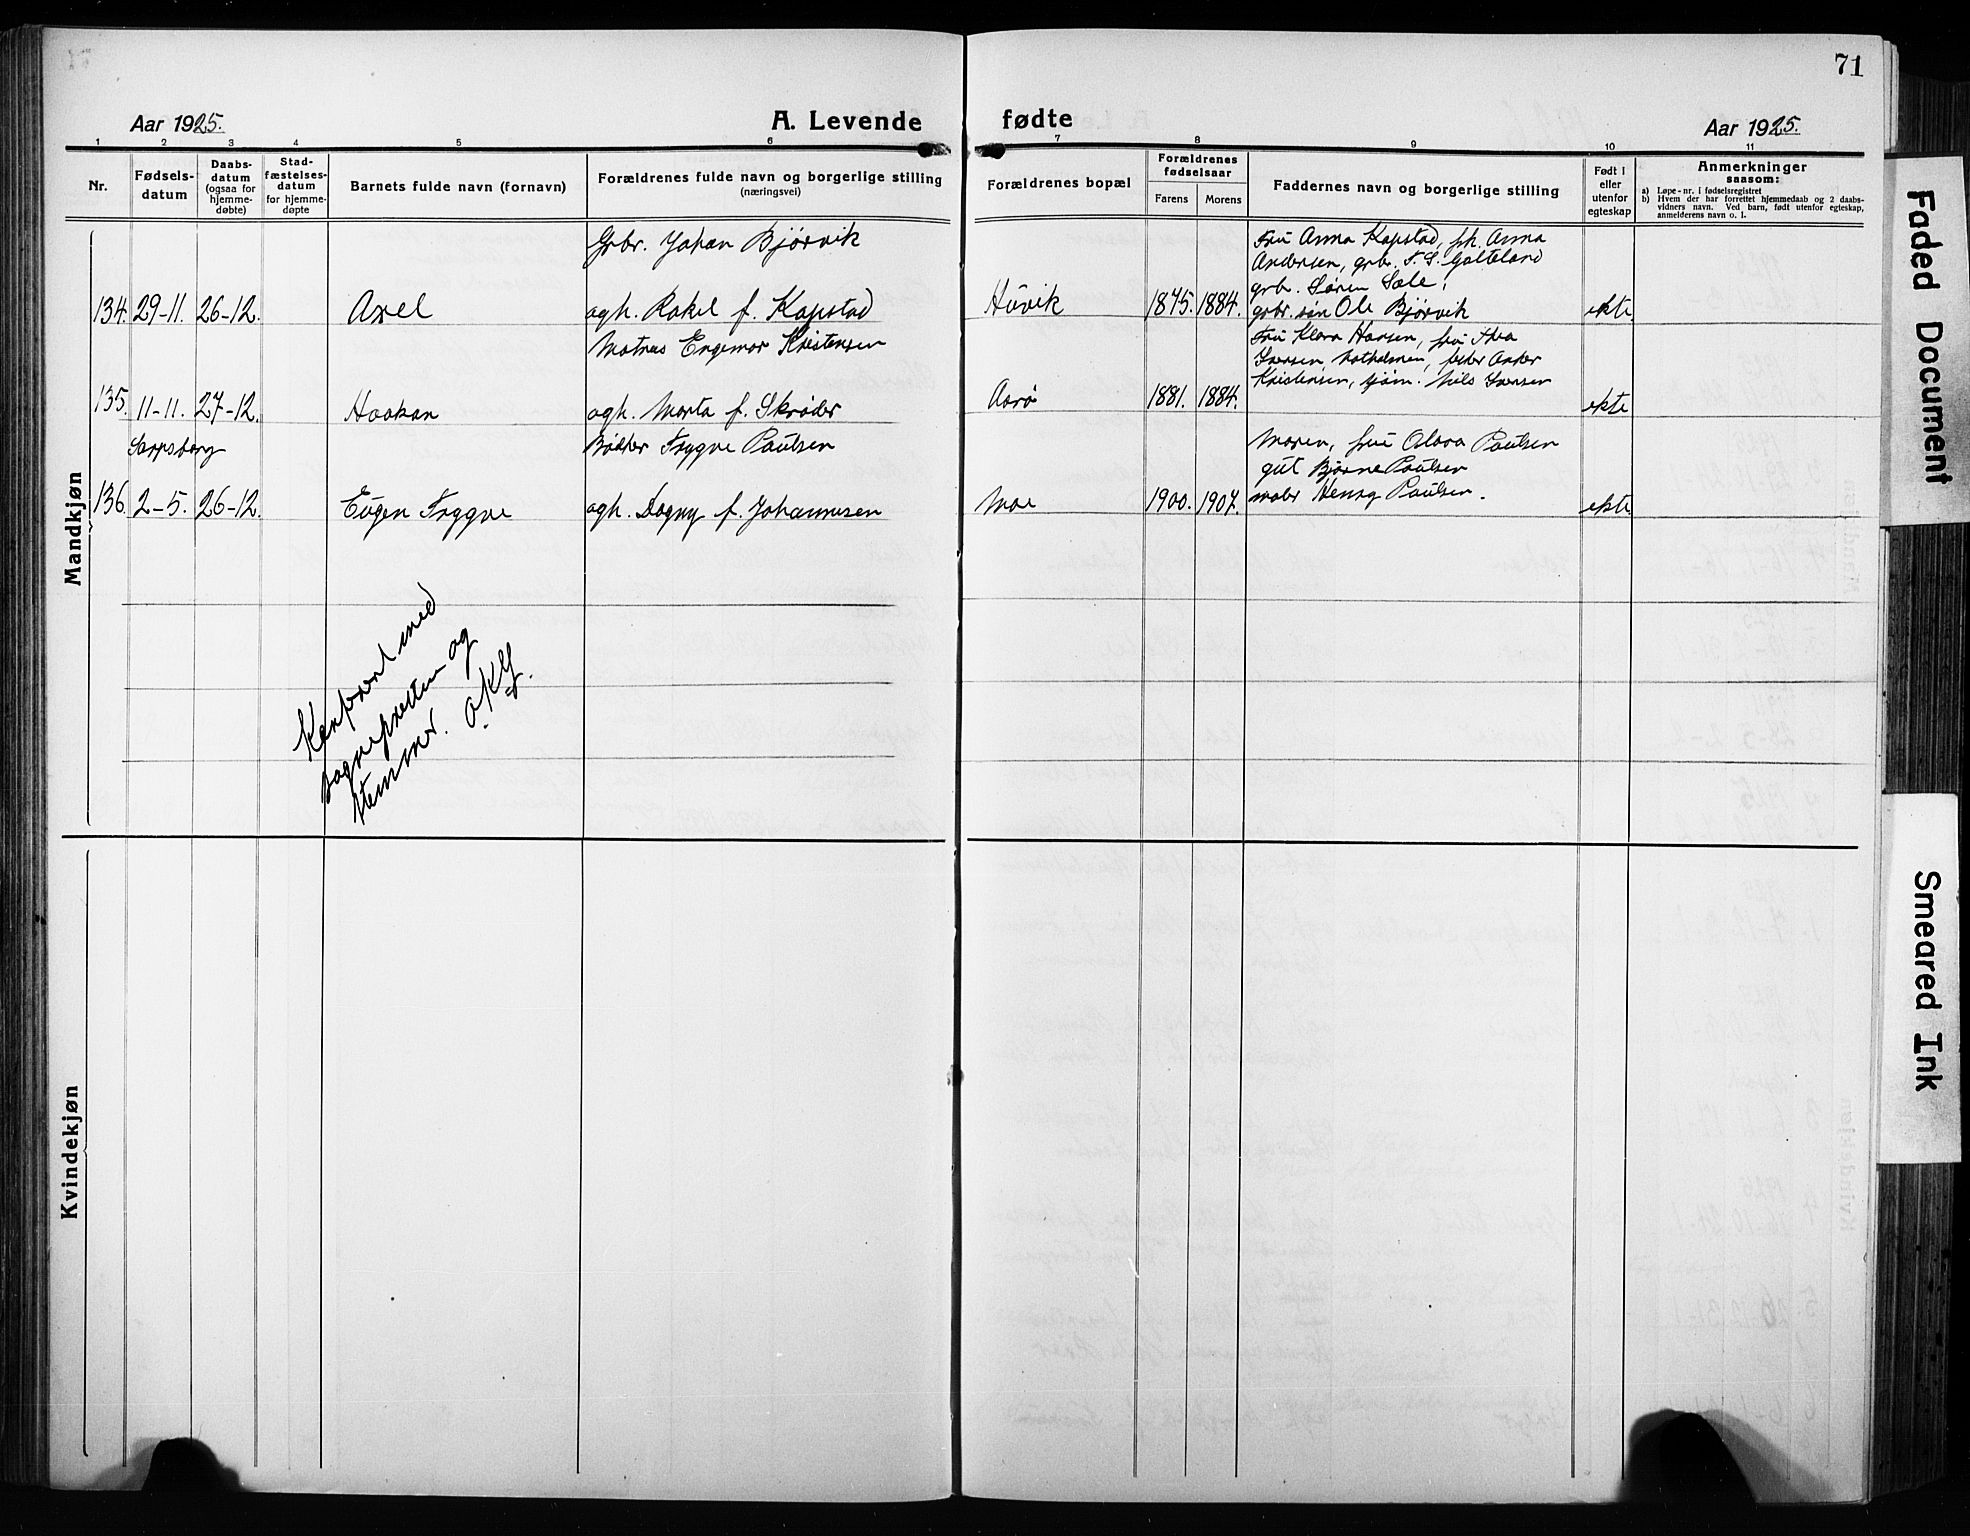 71
Aar 1925.
A. Levende
fødte
Aar 1925.
1 2 3 4 5 6 7 8 9 10 11
Nr.
Fødsels-
datum
Daabs-
datum
(ogsaa for
hjemme-
døbte)
Stad-
fæstelses-
datum
for hjemme-
døpte
Barnets fulde navn (fornavn)
Forældrenes fulde navn og borgerlige stilling
(næringsvei)
Forældrenes bopæl
Forældrenes
fødselsaar
Farens
Morens
Faddernes navn og borgerlige stilling
Født i
eller
utenfor
egteskap
Anmerkninger
saasom:
a) Løpe-nr. i fødselsregistret
b) Hvem der har forrettet hjemmedaab og 2 daabs-
vidners navn. Ved barn, født utenfor egteskap,
anmelderens navn o. l.
Mandkjøn
134. 29-11. 26-12.
Axel
Grbr. Johan Bjørvik
ogh. Rakel f. Kapstad
Huvik
1875. 1884.
Fru Anna Kapstad, pk. Anna
Andersen, grb. T. S. Galteland
grb. Søren Sæle,
grbr. søn Ole Bjørvik
ekte
135. 11-11. 27-12.
Haakon
Matros Engemar Kristensen
ogh. Marta f. Skrøder
Aarø
1881. 1884.
Fru Klara Hansen, fru Thea
Iversen, fisker Anker
Kristensen, sjøm. Nils Iversen
ekte
Sarpsborg
136. 2-5. 26-12.
Eugen Tryggve
Bødker Trygve Paulsen
ogh. Dagny f. Johannesen
Moe
1900. 1907.
Moren, fru Olava Paulsen
gut Bjarne Paulsen
maler Henry Paulsen.
ekte.
Konferert med
sogneprestens og
stemmer.
Kvindekjøn
Faded Document
Smeared Ink